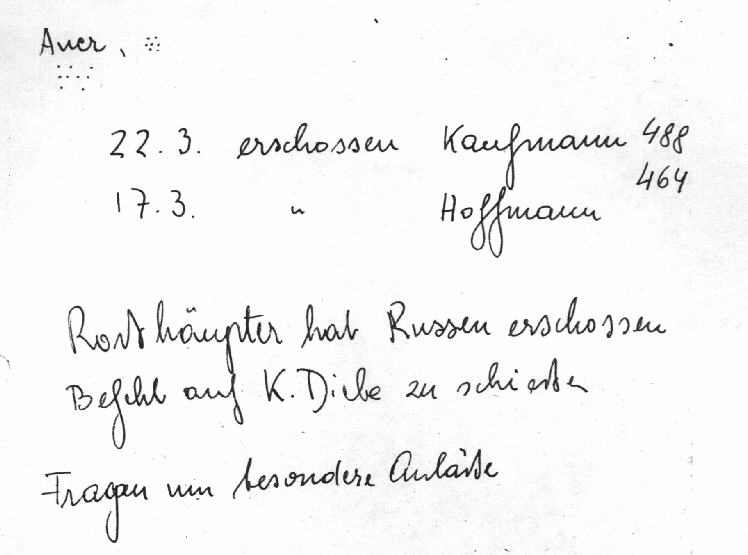 Auer,
22.3. erschossen Kaufmann 488
464
17.3. " Hoffmann
Rosthäupter hat Russen erschossen
Befehl auf K. Diebe zu schießen
Fragen um besondere Anläße